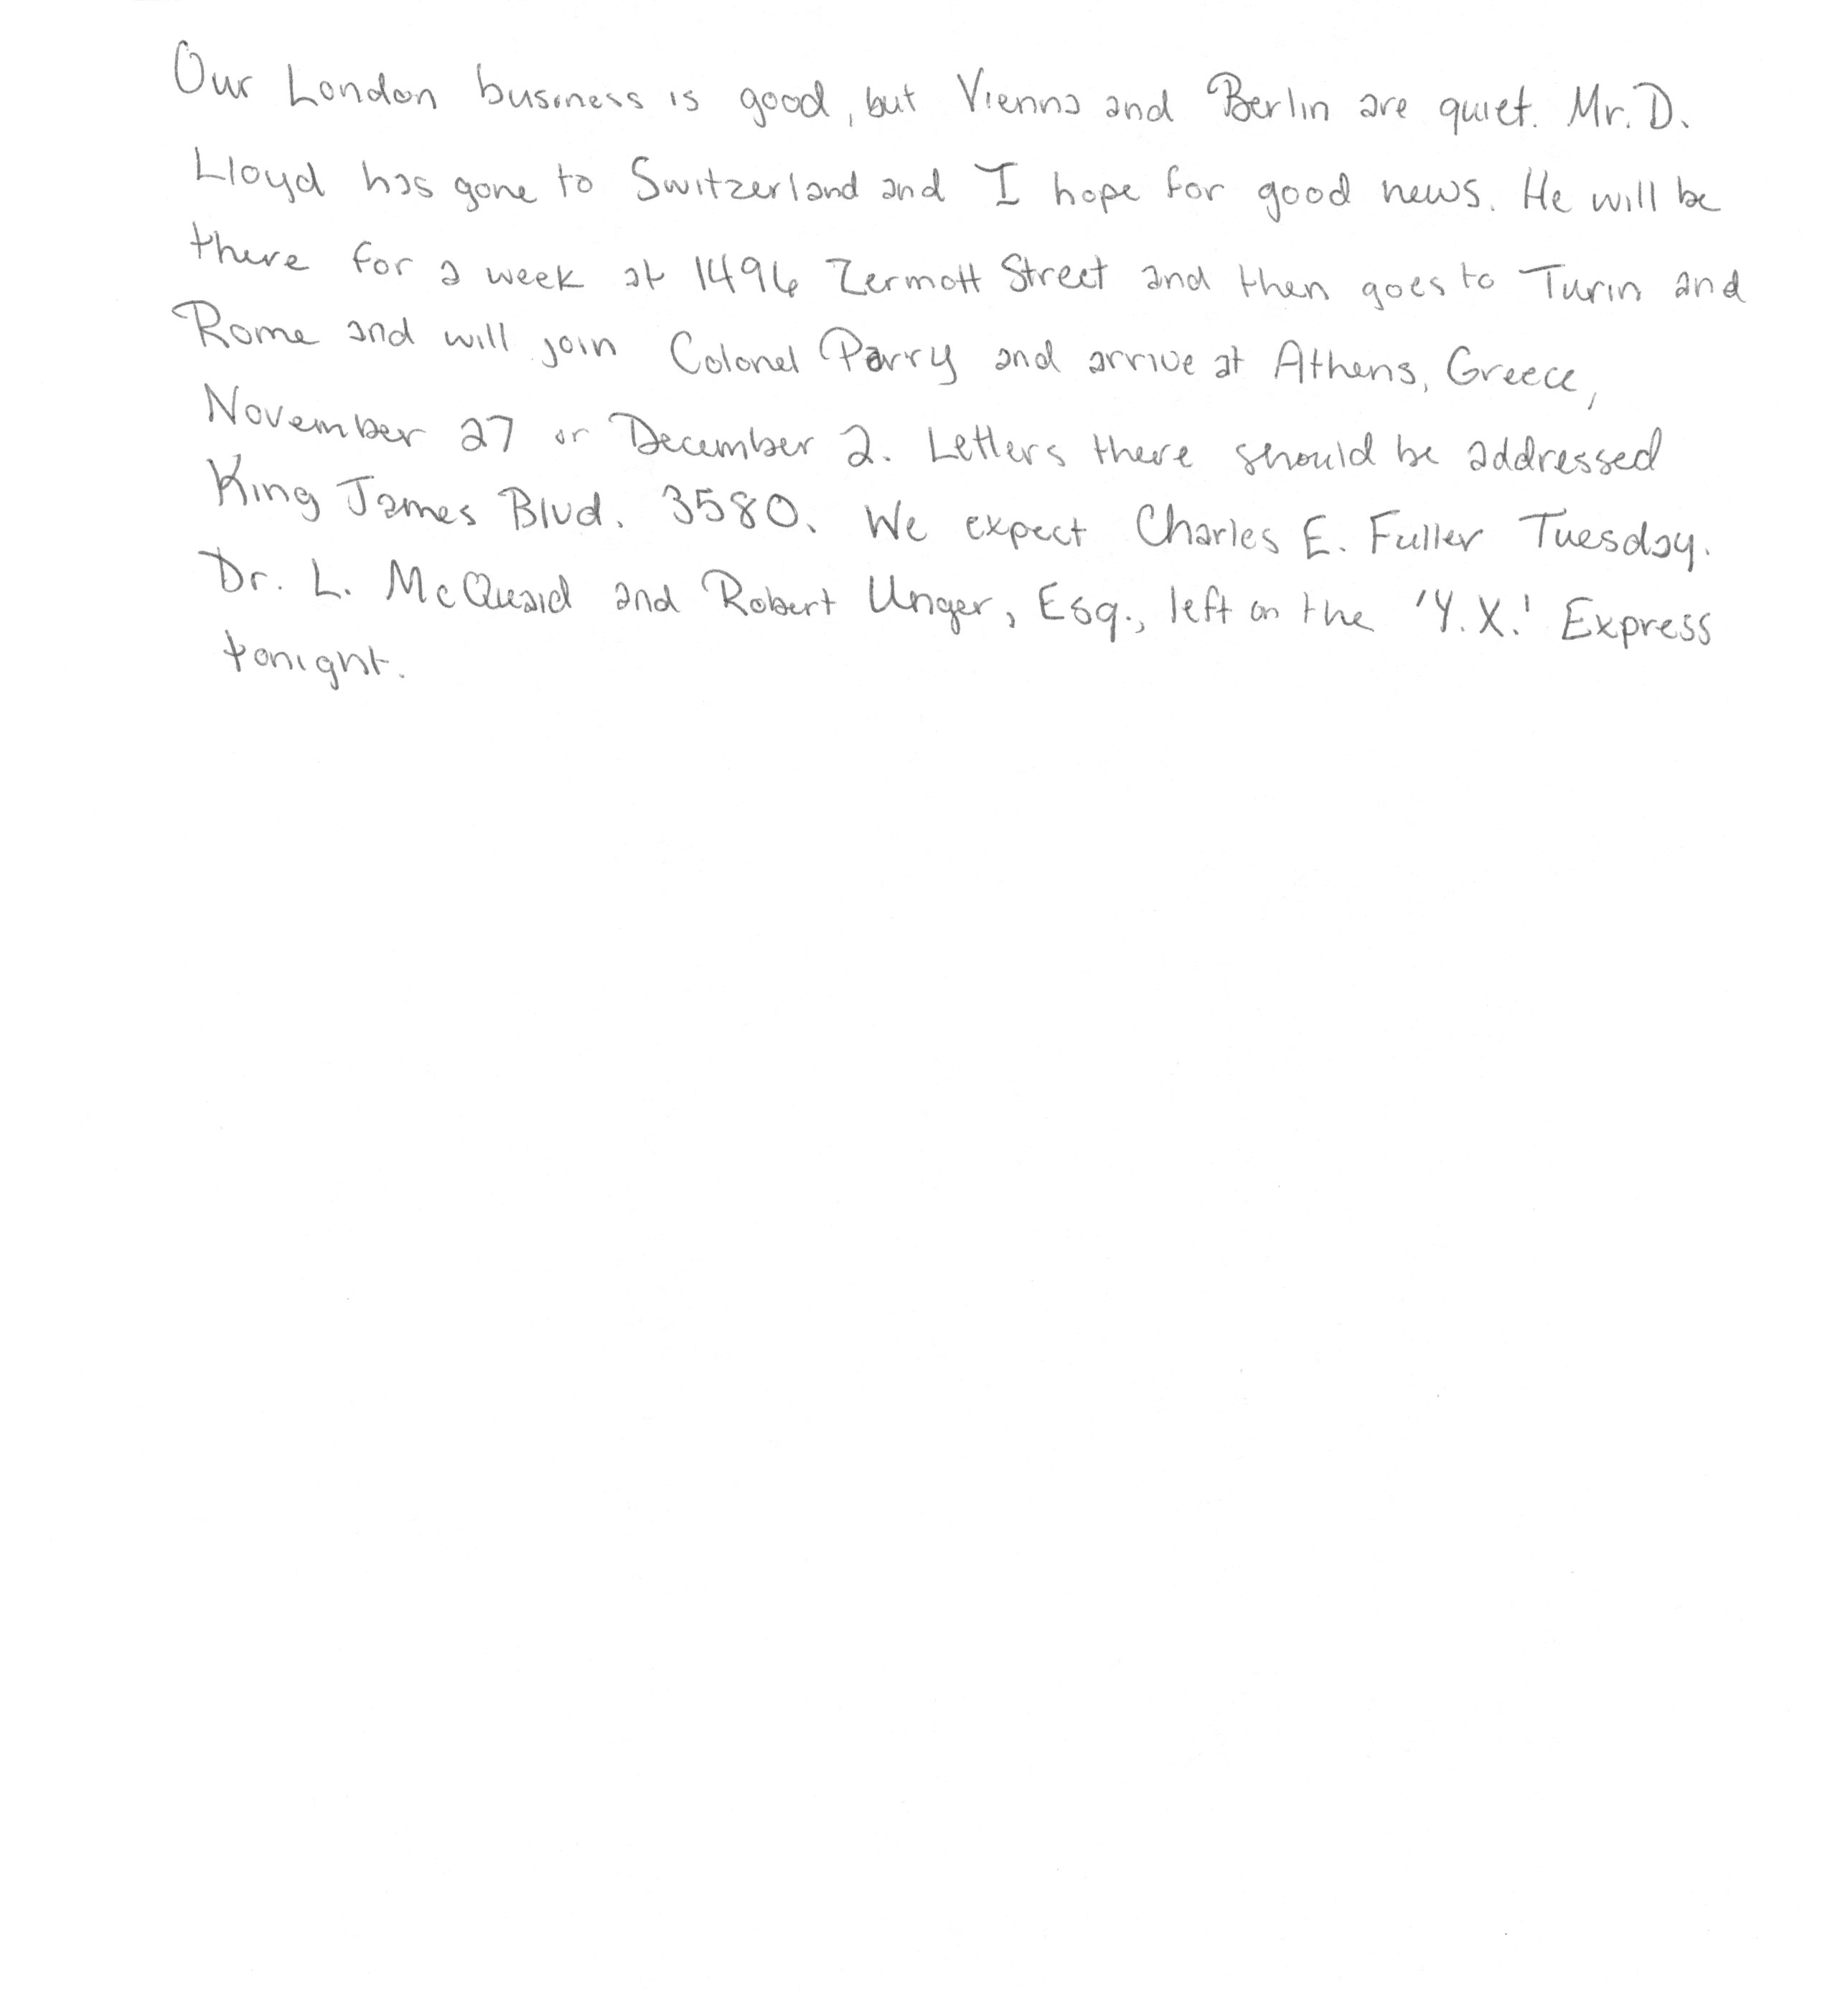 Our London business is good, but Vienna and Berlin are quiet. Mr. D.
Lloyd has gone to Switzerland and I hope for good news. He will be
there for a week at 1496 Zermott Street and then goes to Turin and
Rome and will join Colonel Parry and arrive at Athens, Greece,
November 27 or December 2. Letters there should be addressed
King James Blvd. 3580. We expect Charles E. Fuller Tuesday.
Dr. L. McQuaid and Robert Unger, Esq., left on the 'Y.X.' Express
tonight.